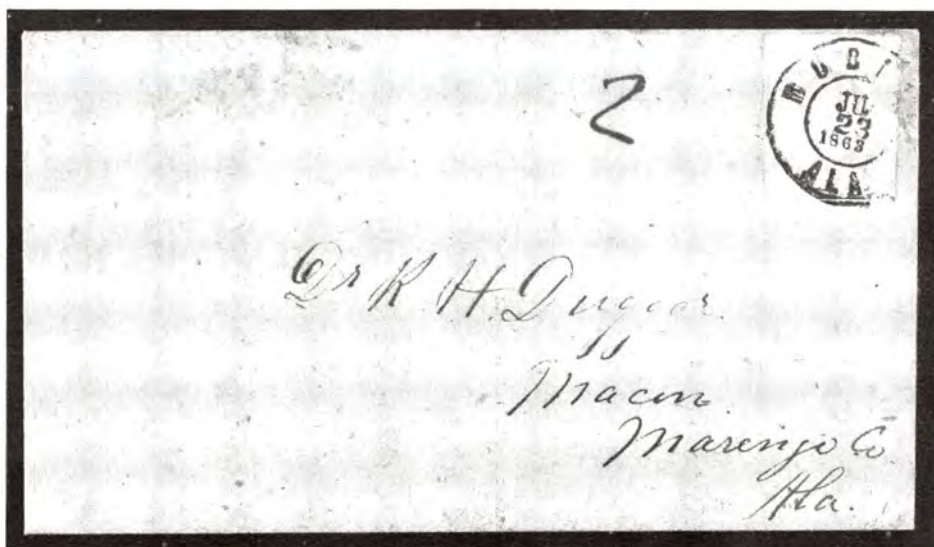 2
MOBI
JUL
23
1863
ALA.
Dr R H. Duggar
Macon
Marengo Co
Ala.